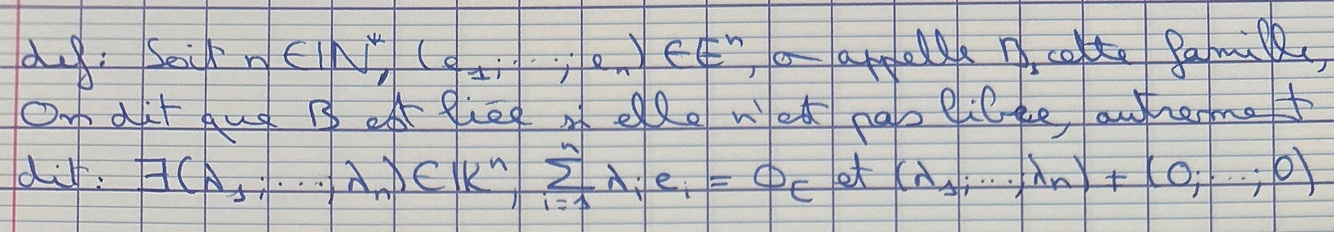 def: Soit n ∈ ℕ*, (e₁;...;eₙ) ∈ Eⁿ, on appelle B, cette famille,
On dit que B est liée si elle n'est pas libre, autrement
dit: ∃(λ₁;...;λₙ) ∈ 𝕂ⁿ, ∑ᵢ₌₁ⁿ λᵢeᵢ = 0_E et (λ₁;...;λₙ) ≠ (0;...;0)